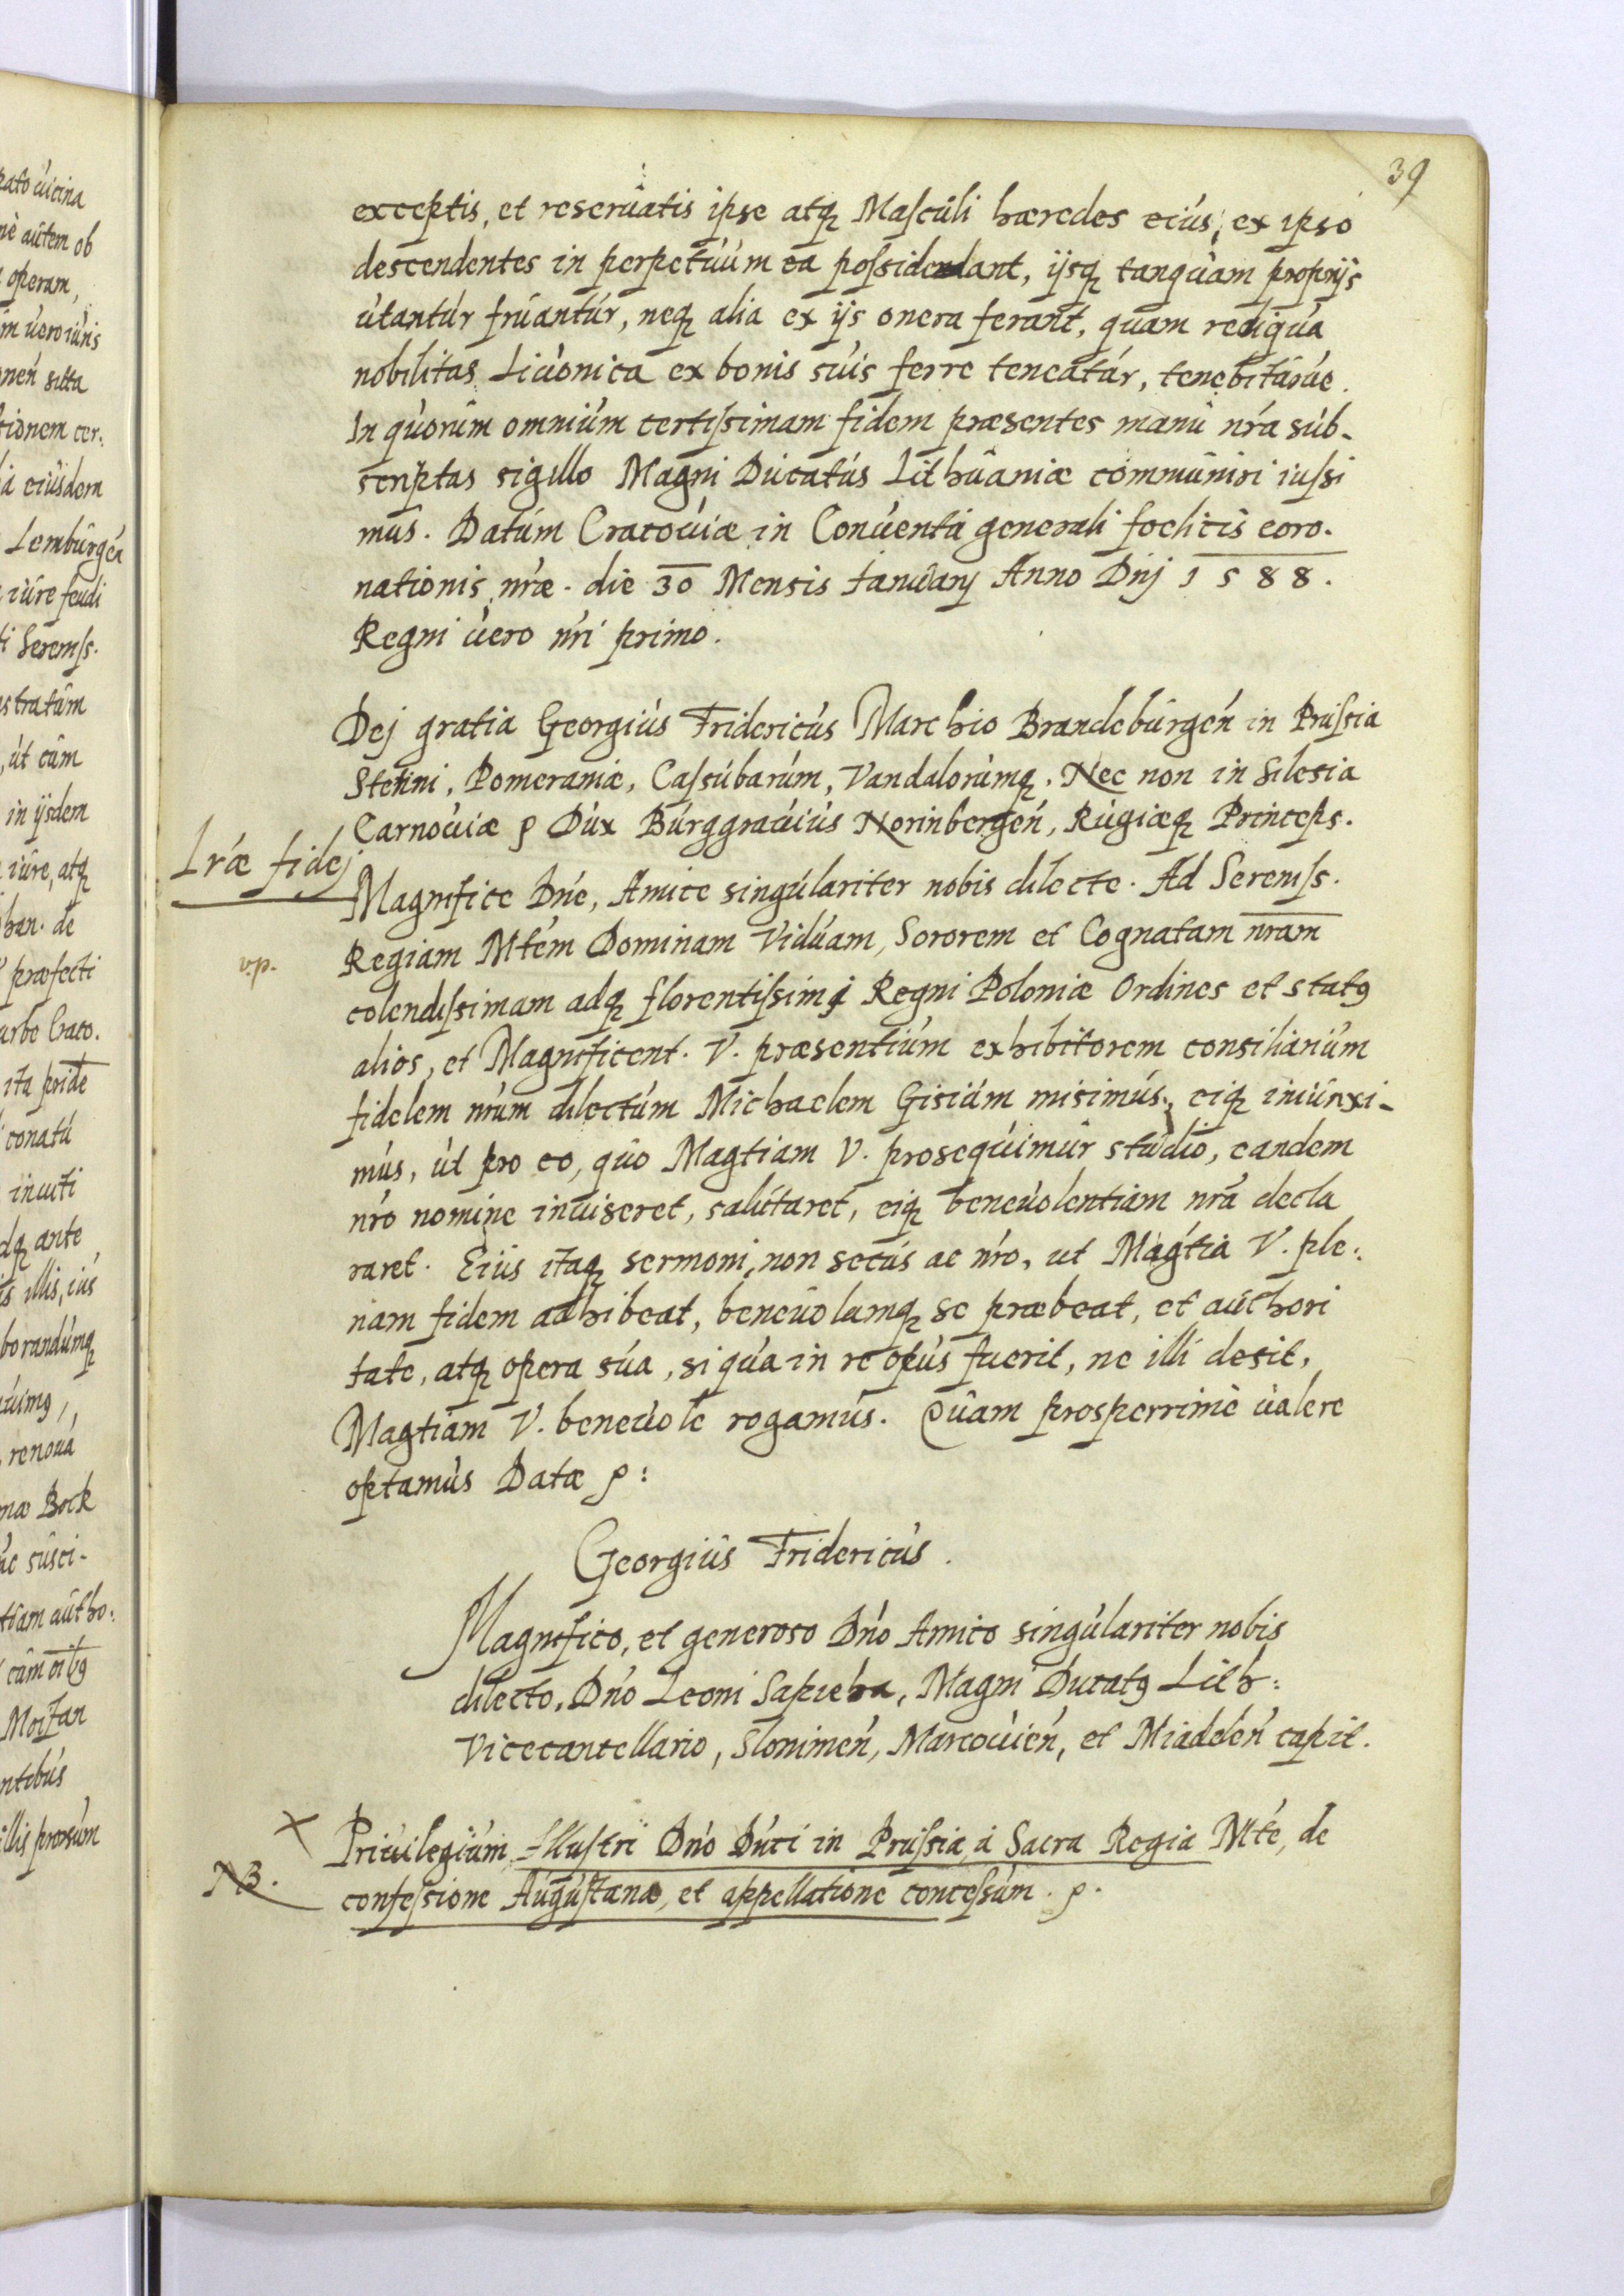 39
exceptis, et reseruatis ipse atq Masculi hæredes eius, ex ipso
descendentes in perpetuum ea possidendant, ijsq tanquam proprijs
utantur fruantur, neq alia ex ijs onera ferant, quam reliqua
nobilitas Liuonica ex bonis suis ferre teneatur, tenebiturue.
In quorum omnium certissimam fidem præsentes manu nra sub-
scriptas sigillo Magni Ducatus Lithuaniæ communiri iussi
mus. Datum Cracouiæ in Conuentu generali foelicis coro-
nationis nræ. die 30 Mensis Januarij Anno Dnj 1588.
Regni uero nri primo.
Dej gratia Georgius Fridericus Marchio Brandeburgen in Prussia
Stetini, Pomeraniæ, Cassubarum, Vandalorumq. Nec non in Silesia
Carnouiæ p Dux Burggrauius Norinbergen, Rugiæq Princeps.
Lræ fidej
Magnifice Dne, Amice singulariter nobis dilecte. Ad Sereniss.
v.p.
Regiam Mtem Dominam Viduam, Sororem et Cognatam nram
colendissimam adq florentissimi Regni Poloniæ Ordines et statq
alios, et Magnificent. V. præsentium exhibitorem consiliarium
fidelem nrum dilectum Michaelem Gisium misimus, eiq iniunxi-
mus, ut pro eo, quo Magtiam V. prosequimur studio, eandem
nro nomine inuiseret, salutaret, eiq beneuolentiam nra decla
raret. Eius itaq sermoni, non secus ac nro, ut Magtia V. ple:
nam fidem adhibeat, beneuolamq se præbeat, et authori
tate, atq opera sua, si qua in re opus fuerit, ne illi desit,
Magtiam V. beneuole rogamus. Quam prosperrime ualere
optamus Datæ p:
Georgius Fridericus.
Magnifico, et generoso Dno Amico singulariter nobis
dilecto, Dno Leoni Sapieha, Magni Ducatq Lith:
Vicecancellario, Slonimen, Marcouien, et Miadelen capit.
X
Priuilegium Illustri Dno Duci in Prussia, a Sacra Regia Mte, de
NB.
confessione Augustana, et appellatione concessum. p.